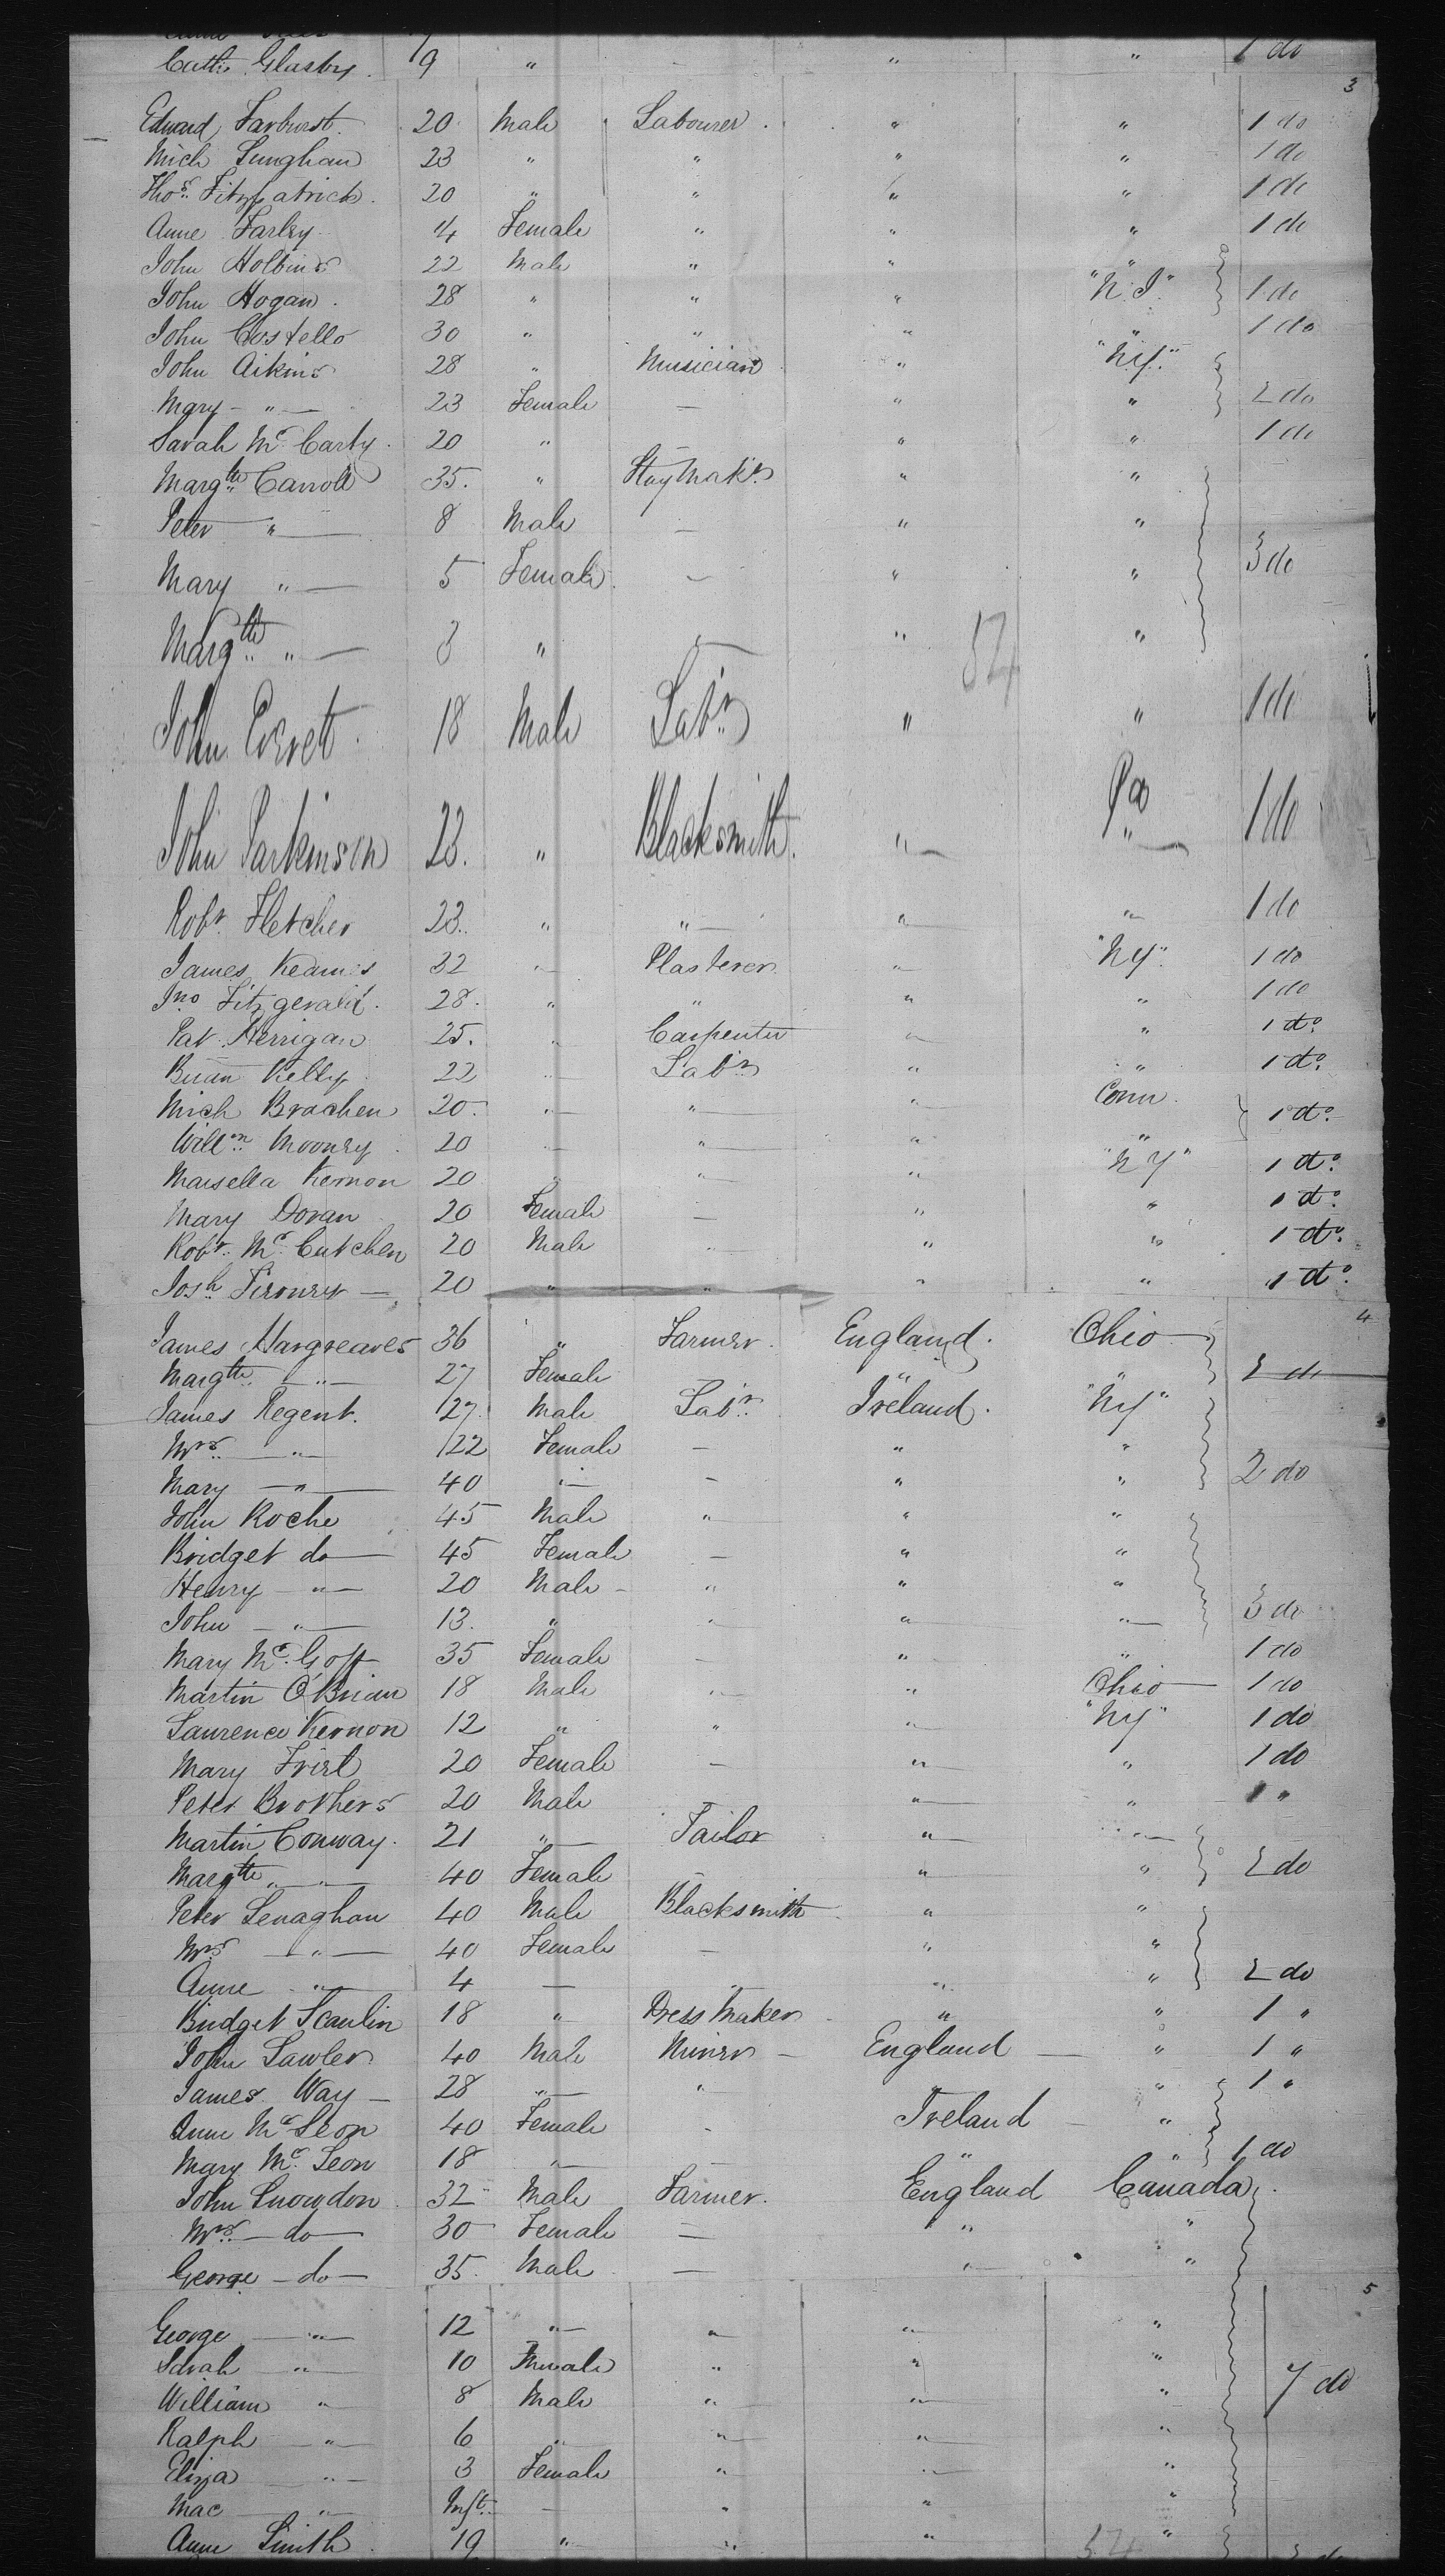 Cath Glasby. 19 " - " " 1 do
3
Edward Farhurst. 20 Male Labourer. " " 1 do
Mich Lunghan 23 " " " " 1 do
Thos. Fitzpatrick. 20 " " " " 1 do
Anne Farley 14 Female " " " 1 do
John Holbins 22 Male " " "
John Hogan. 28 " " " "N.J." 1 do
John Costello 30 " " " " 1 do
John Aikins 28 " Musician " "NY."
Mary - " - 23 Female - " " 2 do
Sarah Mc. Carty. 20 " " " 1 do
Margth Carroll 35. " Stay Makr. " "
Peter " - 8 Male - " "
Mary " - 5 Female - " " 3 do
Margth " - 3 " - " "
54
John Everet. 18 Male Labr. " " 1 do
John Parkinson 23. " Blacksmith. " Pa " 1 do
Robt. Fletcher 23. " " " " 1 do
James Keams 32 " Plasterer " "NY" 1 do
Jno Fitzgerald. 28. " " " " 1 do
Pat Herrigan 25. " Carpenter " " 1 do.
Brian Kelly 22 " Labr. " " 1 do.
Mich Brachen 20. " " " Conn. 1 do.
Willm. Mooney 20 " " " "
Marsella Kernon 20 " " " "NY" 1 do.
Mary Doran 20 Female - " " 1 do.
Robt. Mc. Cutchen 20 Male " " " 1 do.
Josh 20 " " " " 1 do.
4
James Hargreaves 36 " Farmer. England. Ohio
Margth. - " - 27 Female " " 2 do
James Regent. 27. Male Labr. Ireland. "NY"
Mrs. - " 22 Female - " "
Mary - " - 40 " - " " 2 do
John Roche 45 Male " " "
Bridget do - 45 Female - " "
Henry - " - 20 Male - " " "
John - " - 13. " " " " 3 do
Mary Mc. Goff 35 Female - " " 1 do
Martin O'Brian 18 Male " " Ohio - 1 do
Laurence Kernon 12 " " " "NY" 1 do
Mary Frist 20 Female - " " 1 do
Peter Brothers 20 Male " " 1 "
Martin Conway. 21 " Tailor " "
Margth " - 40 Female - " " 2 do
Peter Lenaghan 40 Male Blacksmith " "
Mrs - " - 40 Female - " "
Anne - " - 4 - " " " 2 do
Bridget Scanlin 18 " Dress Maker " " 1 "
John Lawler 40 Male Miner - England - " 1 "
James Way - 28 " " " 1 "
Anne Mc Leon 40 Female - Ireland - "
Mary Mc. Leon 18 " - " " 1 do
John Snowdon 32 Male Farmer. England Canada.
Mrs. - do - 30 Female - " "
George - do - 35. Male - " "
5
George - " - 12 " " " "
Sarah - " - 10 Female " " "
William " 8 Male " " " 7 do
Ralph - " - 6 " " " "
Eliza - " - 3 Female " " "
Mac - " - Inft. - " " "
Anne Smith. 19 " " " "
54